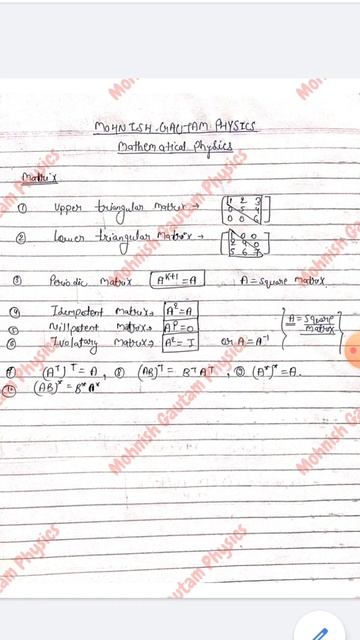 MOHNISH GAUTAM PHYSICS
Mathematical Physics
Matrix
① Upper triangular matrix → [1 2 3
0 5 4
0 0 6]
② Lower triangular Matrix → [1 0 0
2 4 0
5 6 7]
③ Periodic matrix A^{K+1} = A A = square matrix
④ Idempotent matrix → A² = A
⑤ Nillpotent matrix → A^P = 0
⑥ Ivolutary matrix → A² = I or A = A⁻¹ {A = square matrix}
⑦ (A^T)^T = A, ⑧ (AB)^T = B^T A^T, ⑨ (A*)* = A.
⑩ (AB)* = B* A*
Mohnish Gautam Physics